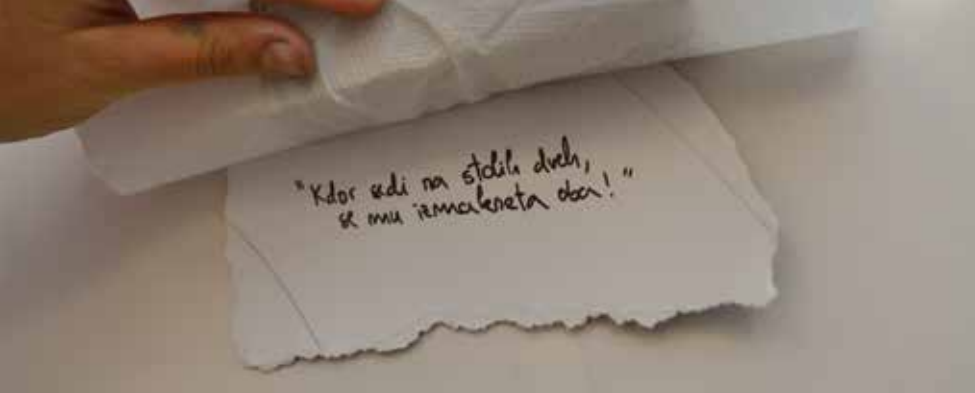 "Kdor sedi na stolih dveh,
se mu izmakneta oba!"